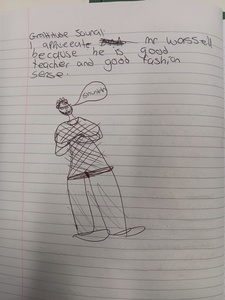 Gratitude Saunal
I appricate mr worssell
because he is good
teacher and good fashion
sense.